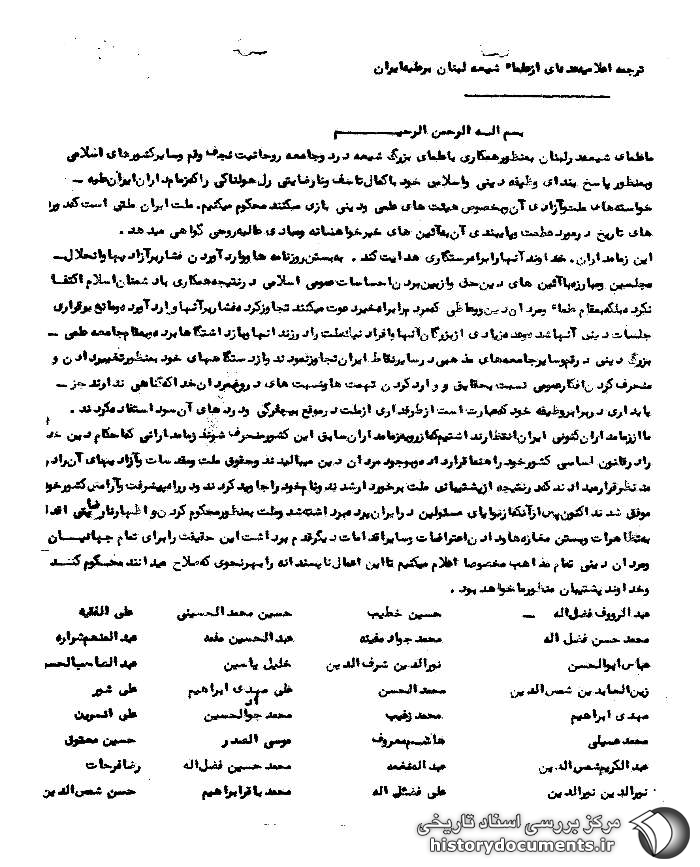 ترجمه اعلامیه عده‌ای از علماء شیعه لبنان بر علیه ایران
بسم الله الرحمن الرحیم
ما علمای شیعه در لبنان به منظور همکاری با علمای بزرگ شیعه در و جامعه روحانیت نجف و قم و سایر کشورهای اسلامی
و به منظور پاسخ بندای وظیفه دینی و اسلامی خود با کمال تأسف و نارضایتی رل هولناکی را که زمامداران ایران علیه
خواسته‌های ملت و آزادی آن و بخصوص هیئت های علمی و دینی بازی میکنند محکوم میکنیم. ملت ایران ملتی است که
های تاریخ در مورد عظمت و پایبندی آن به آئین های خیرخواهانه و مبادی عالیه روحی گواهی میدهد.
این زمامداران. خداوند آنها را براه رستگاری هدایت کند. به بستن روزنامه ها و وارد آوردن فشار بر آزادیها و انحلال
مجلسین و مبارزه با آئین های دین حق و از بین بردن احساسات عمومی اسلامی در نتیجه همکاری با دشمنان اسلام اکتفا
نکرده بلکه بمقام علماء و مردان دین و وعاظی که مردم را براه خیر دعوت میکنند تجاوز کرده فشار بر آنها وارد آورده و مانع برقراری
جلسات دینی آنها شده و عده زیادی از بزرگان آنها و افراد ملت را در زندانها و بازداشتگاهها برده و بمقام جامعه علمی
بزرگ دینی در قم و سایر جامعه‌های مذهبی در سایر نقاط ایران تجاوز نمودند و از دستگاههای خود بمنظور تغییر دادن و
منحرف کردن افکار عمومی نسبت بحقایق و وارد کردن تهمت ها و نسبت های دروغ بمردان خدا که گناهی ندارند جز
پایداری در برابر وظیفه خود که عبارت است از طرفداری از ملت در موقع بیچارگی و دردهای آن سوء استفاده کردند.
ما از زمامداران کنونی ایران انتظار نداشتیم که از رویه زمامداران سابق این کشور منحرف شوند زمامدارانی که احکام دین
را در قانون اساسی کشور خود راهنما قرار داده و بوجود مردان دین میبالیدند و حقوق ملت و مقدسات و آزادیهای آن را
مد نظر قرار میدادند که در نتیجه از پشتیبانی ملت برخوردار شدند و نام خود را جاوید کردند و در راه پیشرفت و آرامش کشور خود
موفق شدند اکنون پس از آنکه از نوایای مسئولین در ایران پرده برداشته شد و ملت بمنظور محکوم کردن و اظهار نارضایتی
به تظاهرات و بستن مغازه‌ها و دادن اعتراضات و سایر اقدامات دیگر قدم برداشت این حقیقت را برای تمام جهانیان
و مردان دینی تمام مذاهب مخصوصا اعلام میکنیم تا این اعمال ناپسندانه را بهر نحوی که صلاح میدانند محکوم کنند
و خداوند پشتیبان منظور ما خواهد بود.
عبدالرووف فضل اله حسین خطیب حسین محمد الحسینی علی الفقیه
محمد حسن فضل اله محمد جواد مغنیه عبدالحسین عبدالمنعم شراره
عباس ابوالحسن نورالدین شرف الدین خلیل یاسین عبدالصاحب الحسـ
زین العابدین شمس الدین محمد الحسن علی مهدی ابراهیم علی شور
مهدی ابراهیم محمد زغیب محمد جوالحسین علی
محمد عسیلی هاشم معروف موسی الصدر حسین معتوق
عبدالکریم شمس الدین محمد حسین فضل اله رضا فرحات
نورالدین نورالدین علی فضل اله محمد باقر ابراهیم حسن شمس الدین
مرکز بررسی اسناد تاریخی
historydocuments.ir